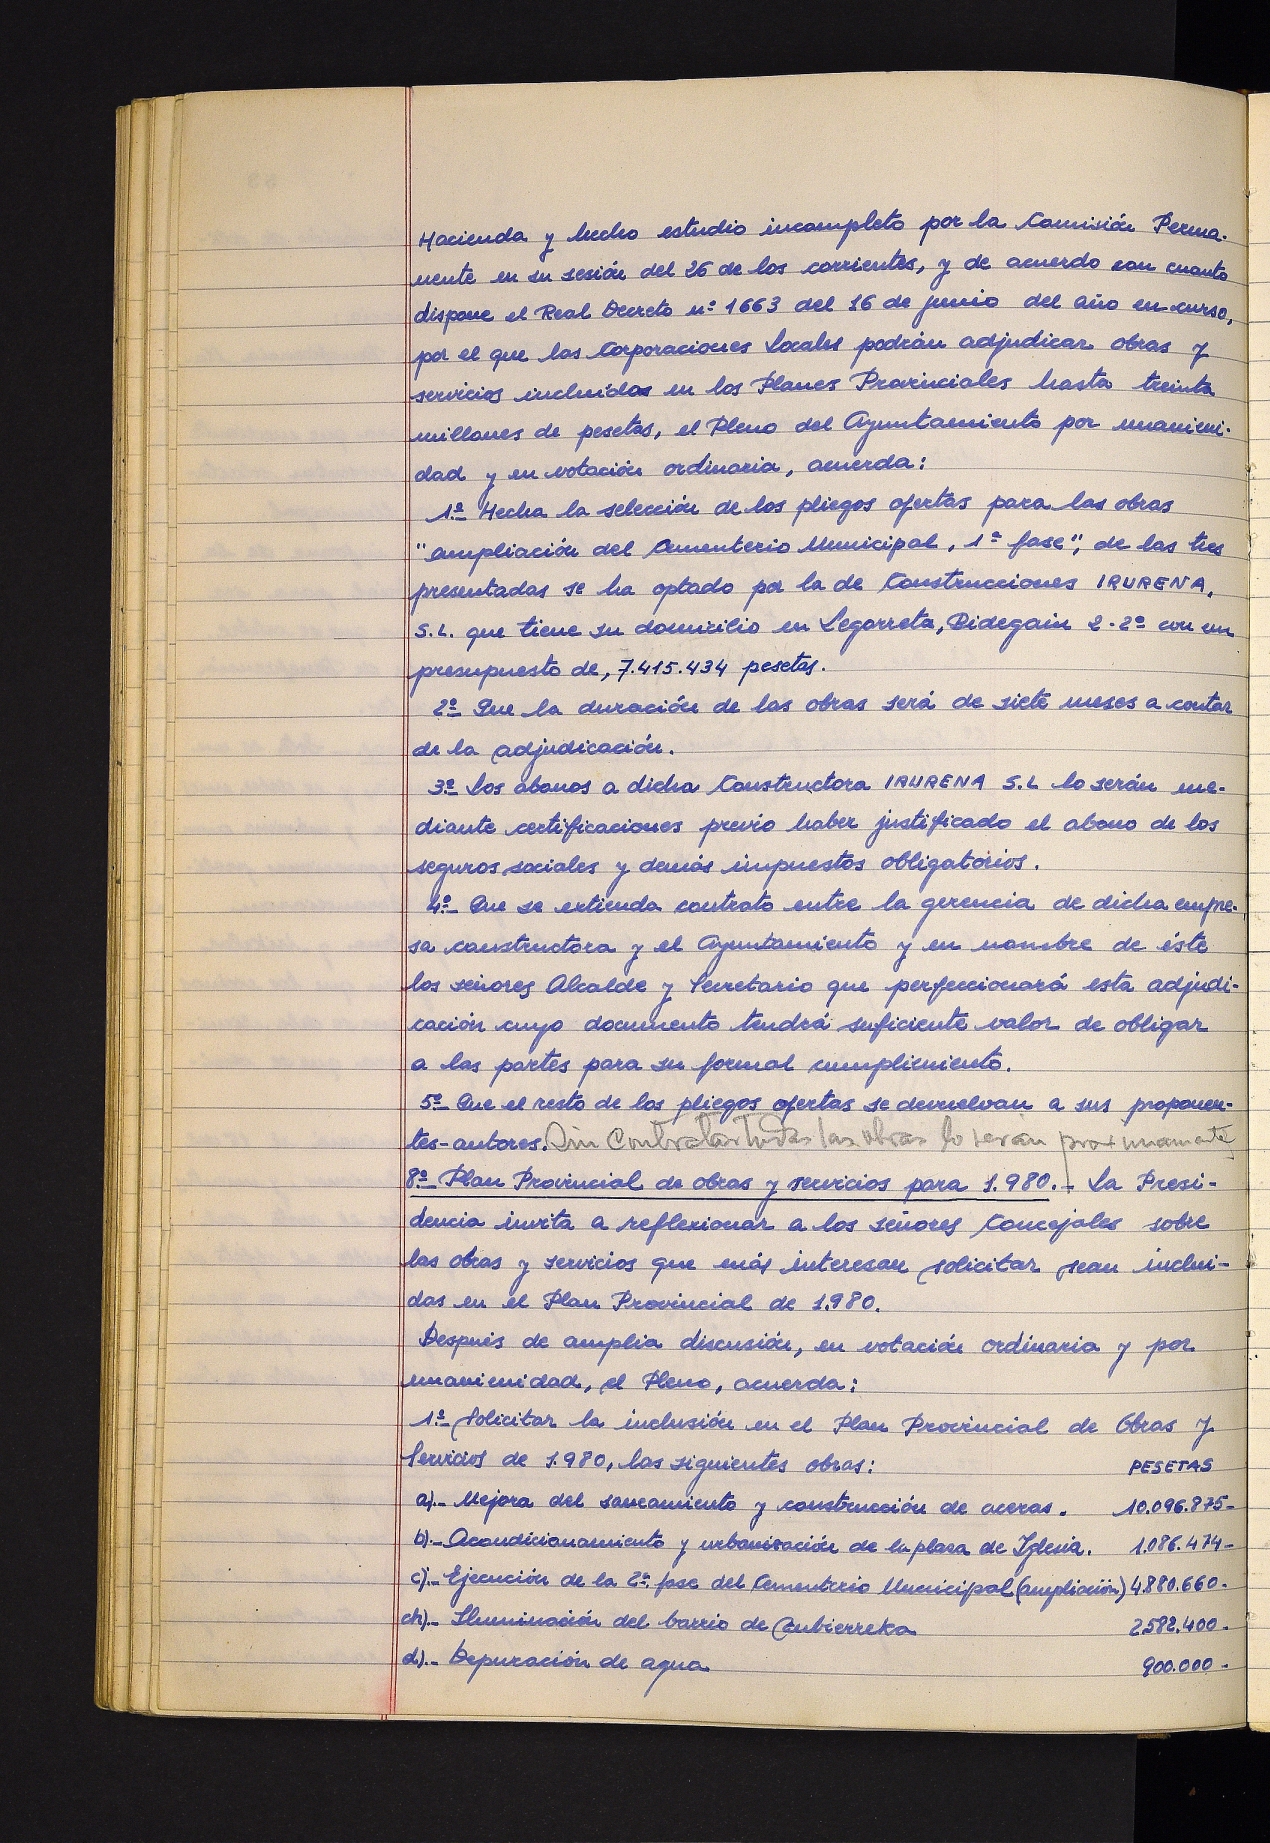 Hacienda y hecho estudio incompleto por la Comisión Perma-
nente en su sesión del 26 de los corrientes, y de acuerdo con cuanto
dispone el Real Decreto nº 1663 del 16 de junio del año en curso,
por el que las Corporaciones Locales podrán adjudicar obras y
servicios incluídos en los Planes Provinciales hasta treinta
millones de pesetas, el Pleno del Ayuntamiento por unanimi-
dad y en votación ordinaria, acuerda:
1º Hecha la selección de los pliegos ofertas para las obras
"ampliación del Cementerio Municipal, 1ª fase", de las tres
presentadas se ha optado por la de Construcciones IRURENA,
S.L. que tiene su domicilio en Legorreta, Bidegain 2-2º con un
presupuesto de, 7.415.434 pesetas.
2º Que la duración de las obras será de siete meses a contar
de la adjudicación.
3º Los abonos a dicha Constructora IRURENA S.L lo serán me-
diante certificaciones previo haber justificado el abono de los
seguros sociales y demás impuestos obligatorios.
4º Que se extienda contrato entre la gerencia de dicha empre-
sa constructora y el Ayuntamiento y en nombre de éste
los señores Alcalde y Secretario que perfeccionará esta adjudi-
cación cuyo documento tendrá suficiente valor de obligar
a las partes para su formal cumplimiento.
5º Que el resto de los pliegos ofertas se devuelvan a sus proponen-
tes-autores. Sin Contratar todas las obras lo seran proximamente
8º Plan Provincial de obras y servicios para 1.980.- La Presi-
dencia invita a reflexionar a los señores Concejales sobre
las obras y servicios que más interesan solicitar sean inclui-
das en el Plan Provincial de 1.980.
Después de amplia discusión, en votación ordinaria y por
unanimidad, el Pleno, acuerda:
1º Solicitar la inclusión en el Plan Provincial de Obras y
Servicios de 1.980, las siguientes obras: PESETAS
a).- Mejora del saneamiento y construcción de aceras. 10.096.875-
b).- Acondicionamiento y urbanización de la plaza de Iglesia. 1.086.474-
c).- Ejecución de la 2ª fase del Cementerio Municipal (ampliación) 4.880.660.
ch).- Iluminación del barrio de Zubierreka 2.582.400.
d).- Depuración de agua 900.000-